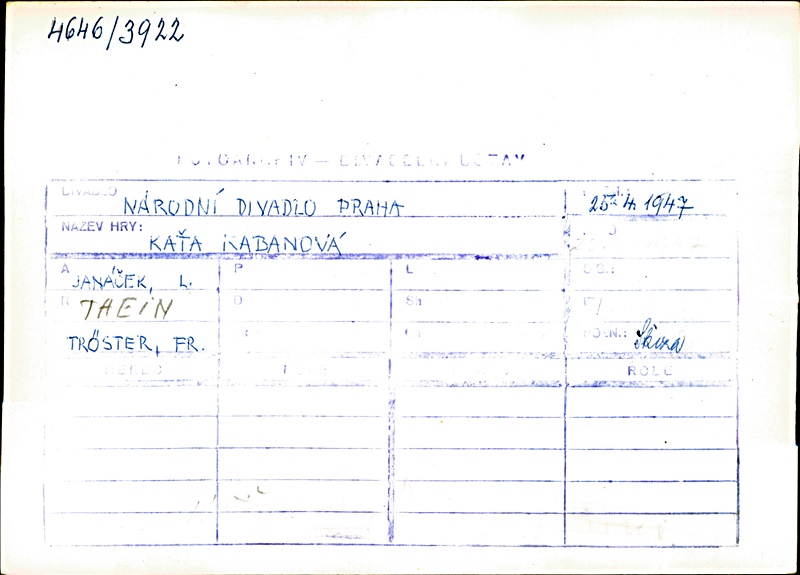 4646/3922
FOTOARCHIV — DIVADELNÍ ÚSTAV
DIVADLO NÁRODNÍ DIVADLO PRAHA 25. 4. 1947
NÁZEV HRY: KAŤA KABANOVÁ
A JANÁČEK, L. P L
R THEIN O
TRÖSTER, FR.
HEREC ROLE ROLE